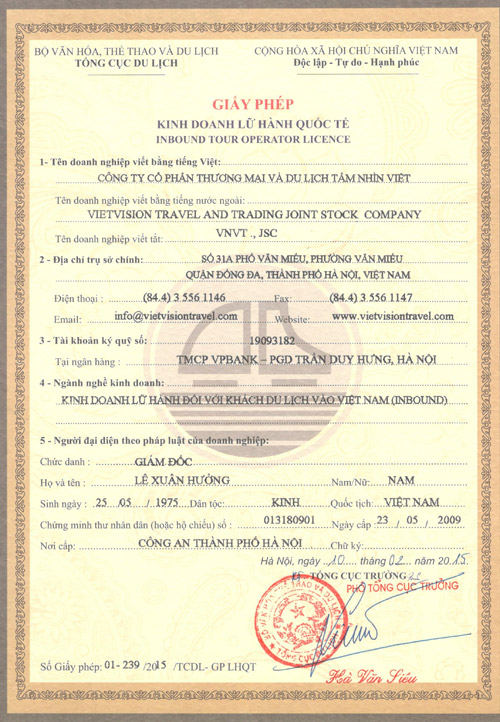 BỘ VĂN HÓA, THỂ THAO VÀ DU LỊCH
TỔNG CỤC DU LỊCH
CỘNG HÒA XÃ HỘI CHỦ NGHĨA VIỆT NAM
Độc lập - Tự do - Hạnh phúc
GIẤY PHÉP
KINH DOANH LỮ HÀNH QUỐC TẾ
INBOUND TOUR OPERATOR LICENCE
1- Tên doanh nghiệp viết bằng tiếng Việt:
CÔNG TY CỔ PHẦN THƯƠNG MẠI VÀ DU LỊCH TẦM NHÌN VIỆT
Tên doanh nghiệp viết bằng tiếng nước ngoài:
VIETVISION TRAVEL AND TRADING JOINT STOCK COMPANY
Tên doanh nghiệp viết tắt: VNVT ., JSC
2 - Địa chỉ trụ sở chính: SỐ 31A PHỐ VĂN MIẾU, PHƯỜNG VĂN MIẾU
QUẬN ĐỐNG ĐA, THÀNH PHỐ HÀ NỘI, VIỆT NAM
Điện thoại : (84.4) 3 556 1146 Fax: (84.4) 3 556 1147
Email: info@vietvisiontravel.com Website: www.vietvisiontravel.com
3 - Tài khoản ký quỹ số: 19093182
Tại ngân hàng : TMCP VPBANK – PGD TRẦN DUY HƯNG, HÀ NỘI
4 - Ngành nghề kinh doanh:
KINH DOANH LỮ HÀNH ĐỐI VỚI KHÁCH DU LỊCH VÀO VIỆT NAM (INBOUND)
5 - Người đại diện theo pháp luật của doanh nghiệp:
Chức danh : GIÁM ĐỐC
Họ và tên : LÊ XUÂN HƯỞNG Nam/Nữ: NAM
Sinh ngày : 25 / 05 / 1975 Dân tộc: KINH Quốc tịch: VIỆT NAM
Chứng minh thư nhân dân (hoặc hộ chiếu) số : 013180901 Ngày cấp: 23 / 05 / 2009
Nơi cấp: CÔNG AN THÀNH PHỐ HÀ NỘI Chữ ký:
Hà Nội, ngày 10 tháng 02 năm 2015
TỔNG CỤC TRƯỞNG
PHÓ TỔNG CỤC TRƯỞNG
Số Giấy phép: 01-239 /2015 /TCDL- GP LHQT
Hà Văn Siêu